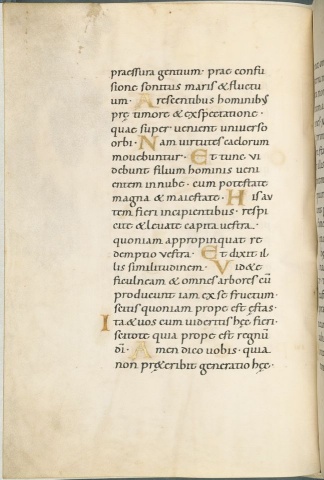 praessura gentium· prae confu
sione sonitus maris & fluctu
um· Arescentibus hominib;
prę timore & exspectatione·
quae super venient universo
orbi· Nam virtutes caelorum
movebuntur· Et tunc vi
debunt filium hominis veni
entem in nube· cum potestate
magna & maiestate· His au
tem fieri incipientibus· respi
cite & levate capita vestra·
quoniam appropinquat re
demptio vestra· Et dixit il
lis similitudinem· Vid&e
ficulneam & omnes arbores cū
producunt iam ex se fructum·
scitis quoniam prope est ęstas·
Ita & vos cum videritis hęc fieri·
scitote quia prope est regnū
dī· Amen dico vobis· quia
non pręteribit generatio hęc·